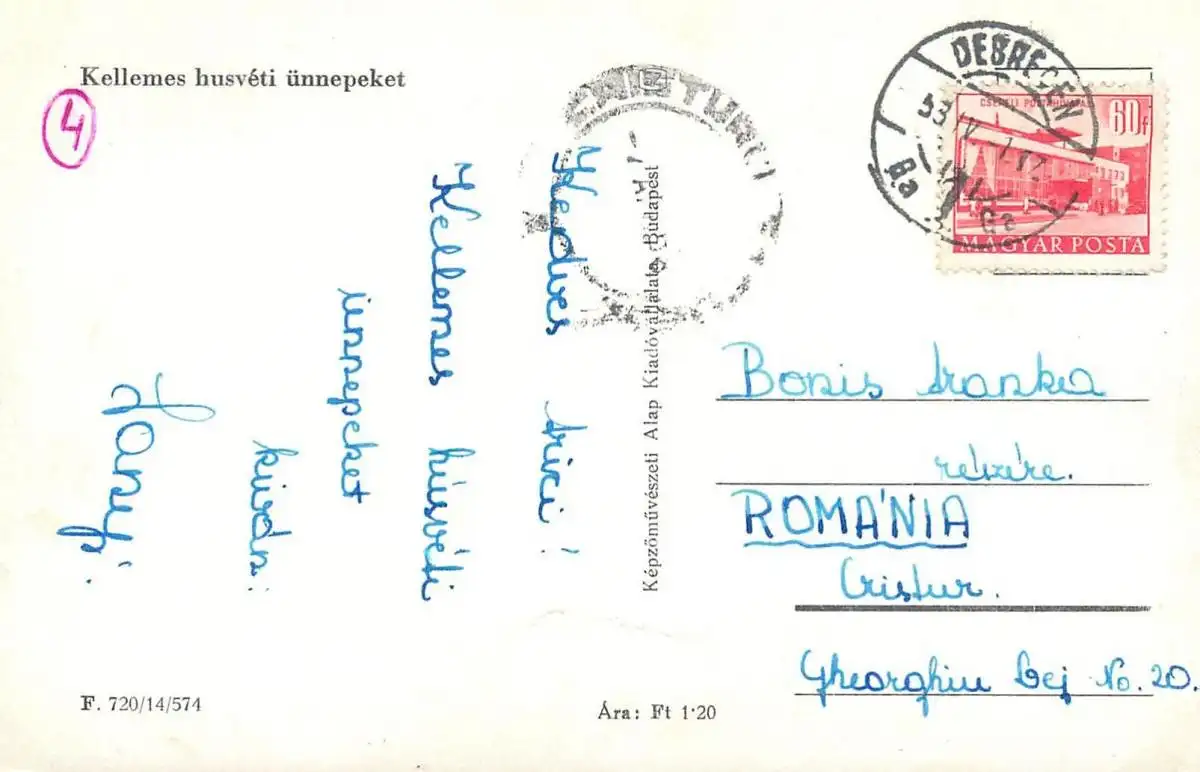 Kellemes husvéti ünnepeket
4
Kedves Irici!
Kellemes húsvéti
ünnepeket
kíván:
F. 720/14/574
Ára: Ft 1·20
Képzőművészeti Alap Kiadóvállalata, Budapest
DEBRECEN
CSEPELI POSTAHIVATAL
60f
MAGYAR POSTA
Bonis Iranka
részére.
ROMÁNIA
Cristur.
Gheorghiu Dej No. 20.